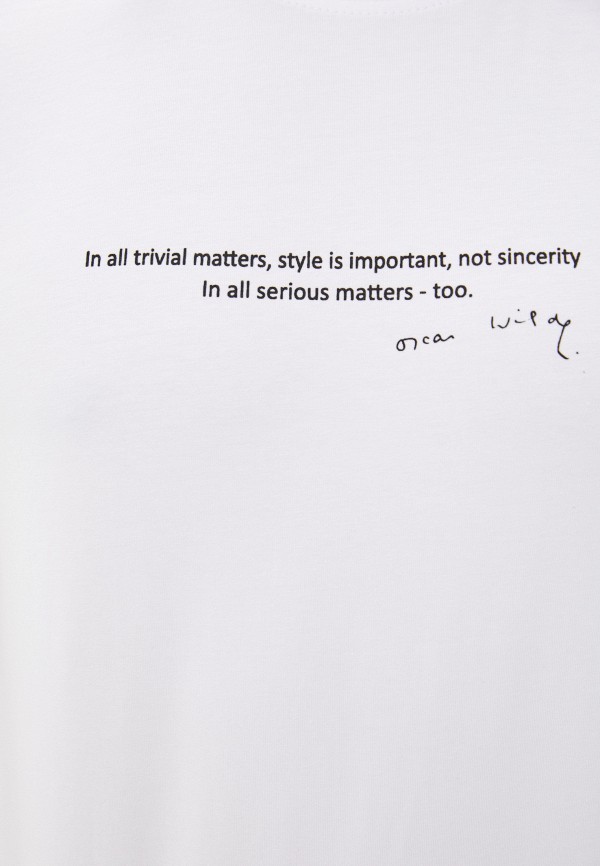 In all trivial matters, style is important, not sincerity
In all serious matters - too.
oscar wilde